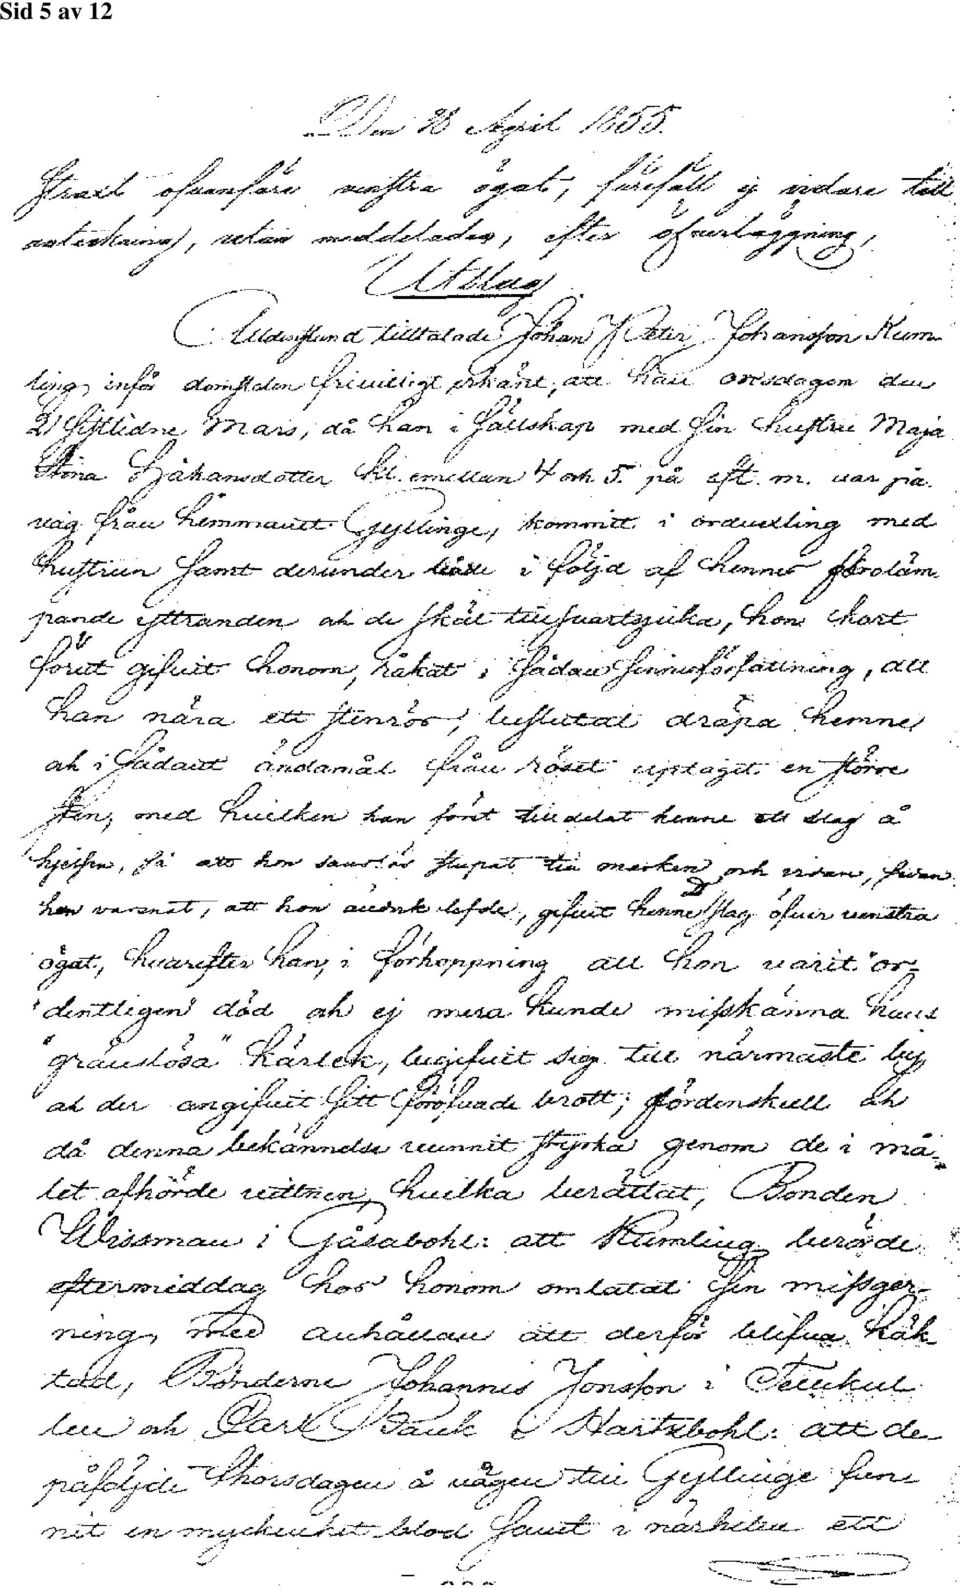 Sid 5 av 12
Den 28 April 1855.
Straxt ofvanföre venstra ögat, förefall ej vidare till
anteckning, utan meddelades, efter öfverläggning,
Utslag
Alldenstund tilltalade Johan Peter Johansson Kum
ling, inför domstolen frivilligt erkänt, att han onsdagen den
21 sistlidne Mars, då han i sällskap med sin hustru Maja
Stina Håkansdotter kl. emellan 4 och 5. på eft. m. var på
väg från hemmanet Gyllinge, kommit i ordvexling med
hustrun samt derunder i följd af hennes föroläm
pande yttranden och de skäl till svartsjuka, hon kort
förut gifvit honom, råkat i sådan sinnesförfattning, att
han nära ett stenrös, beslutat dräpa henne
och i sådant ändamål från röset upptagit en större
sten, med hvilken han först tilldelat henne ett slag å
hjessan, så att hon sanslös stupat till marken och vidare, sedan
han varsnat, att hon ännu lefde, gifvit henne slag öfver venstra
ögat, hvarefter han, i förhoppning att hon varit "or-
"dentligen" död och ej mera kunde misskänna hans
"gränslösa" kärlek, begifvit sig till närmaste by
och der angifvit sitt föröfvade brott; fördenskull och
då denna bekännelse vunnit styrka genom de i må-
let afhörde vittnen, hvilka berättat, Bonden
Wissman i Gåsabohl: att Kumling berörde
eftermiddag hos honom omtalat sin missger-
ning, med anhållan att derför blifva häk
tad, Bönderne Johannes Jonsson i
och Carl i Hartzbohl: att de
påföljde Thorsdagen å vägen till Gyllinge funn
nit en myckenhet blod samt i närheten ett